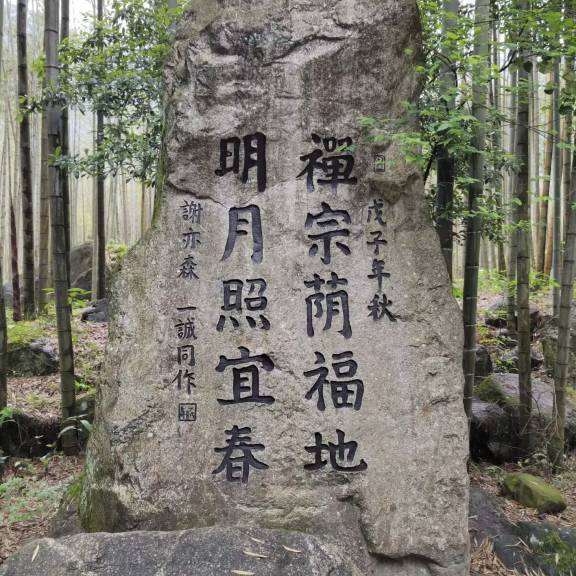 戊子年秋
禪宗荫福地
明月照宜春
謝亦森 一誠同作